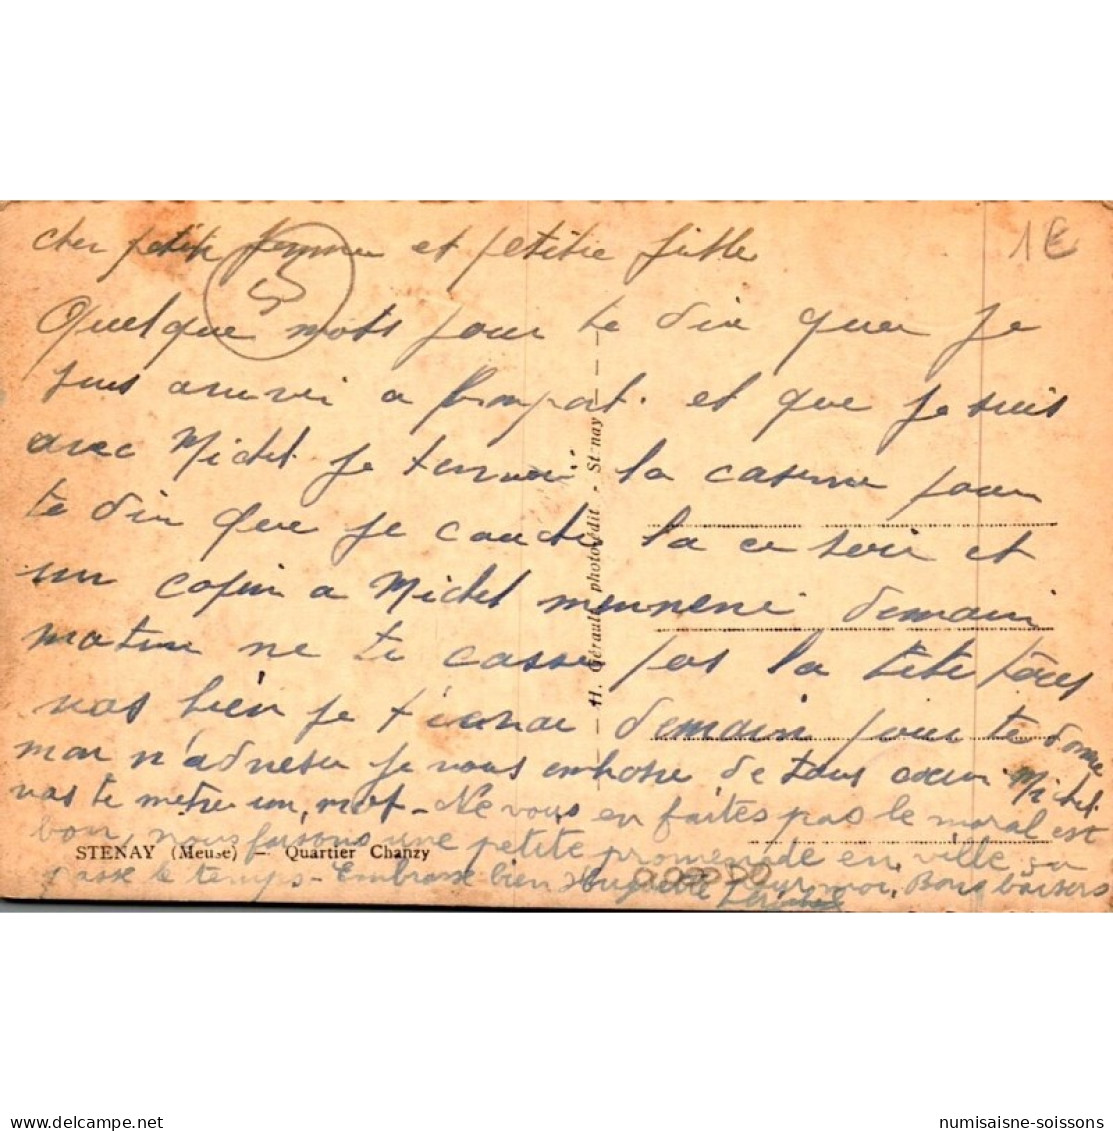 cher petite femme et petitie fille
1€
Quelque mots pour te dire que je
suis arrivi a bompart. et que je suis
avec Michel je la caserne pour
te dire que je couche la ce soir et
un copin a Michel demain
matin ne te casse pas la tête
vas bien je demain pour te donne
mon n'adresse je vous embrase de tous cœur Michel
vas te mètre un mot - Ne vous en faites pas le moral est
bon, nous faisons une petite promenade en ville ça
passe le temps - Embrasse bien Huguette pour moi. Bons baisers
STENAY (Meuse) — Quartier Chanzy
H. Gérault, photo-édit - Stenay
numisaisne-soissons